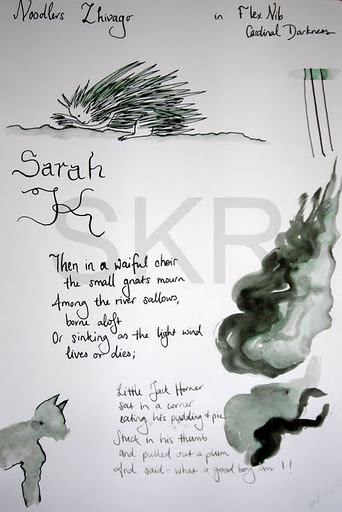 Noodlers Zhivago in Flex Nib
Cardinal Darkness
Sarah
SKR
Then in a waiful choir
the small gnats mourn
Among the river sallows,
borne aloft
Or sinking as the light wind
lives or dies;
Little Jack Horner
sat in a corner
eating his pudding & pie
Stuck in his thumb
and pulled out a plum
And said - what a good boy am I!!